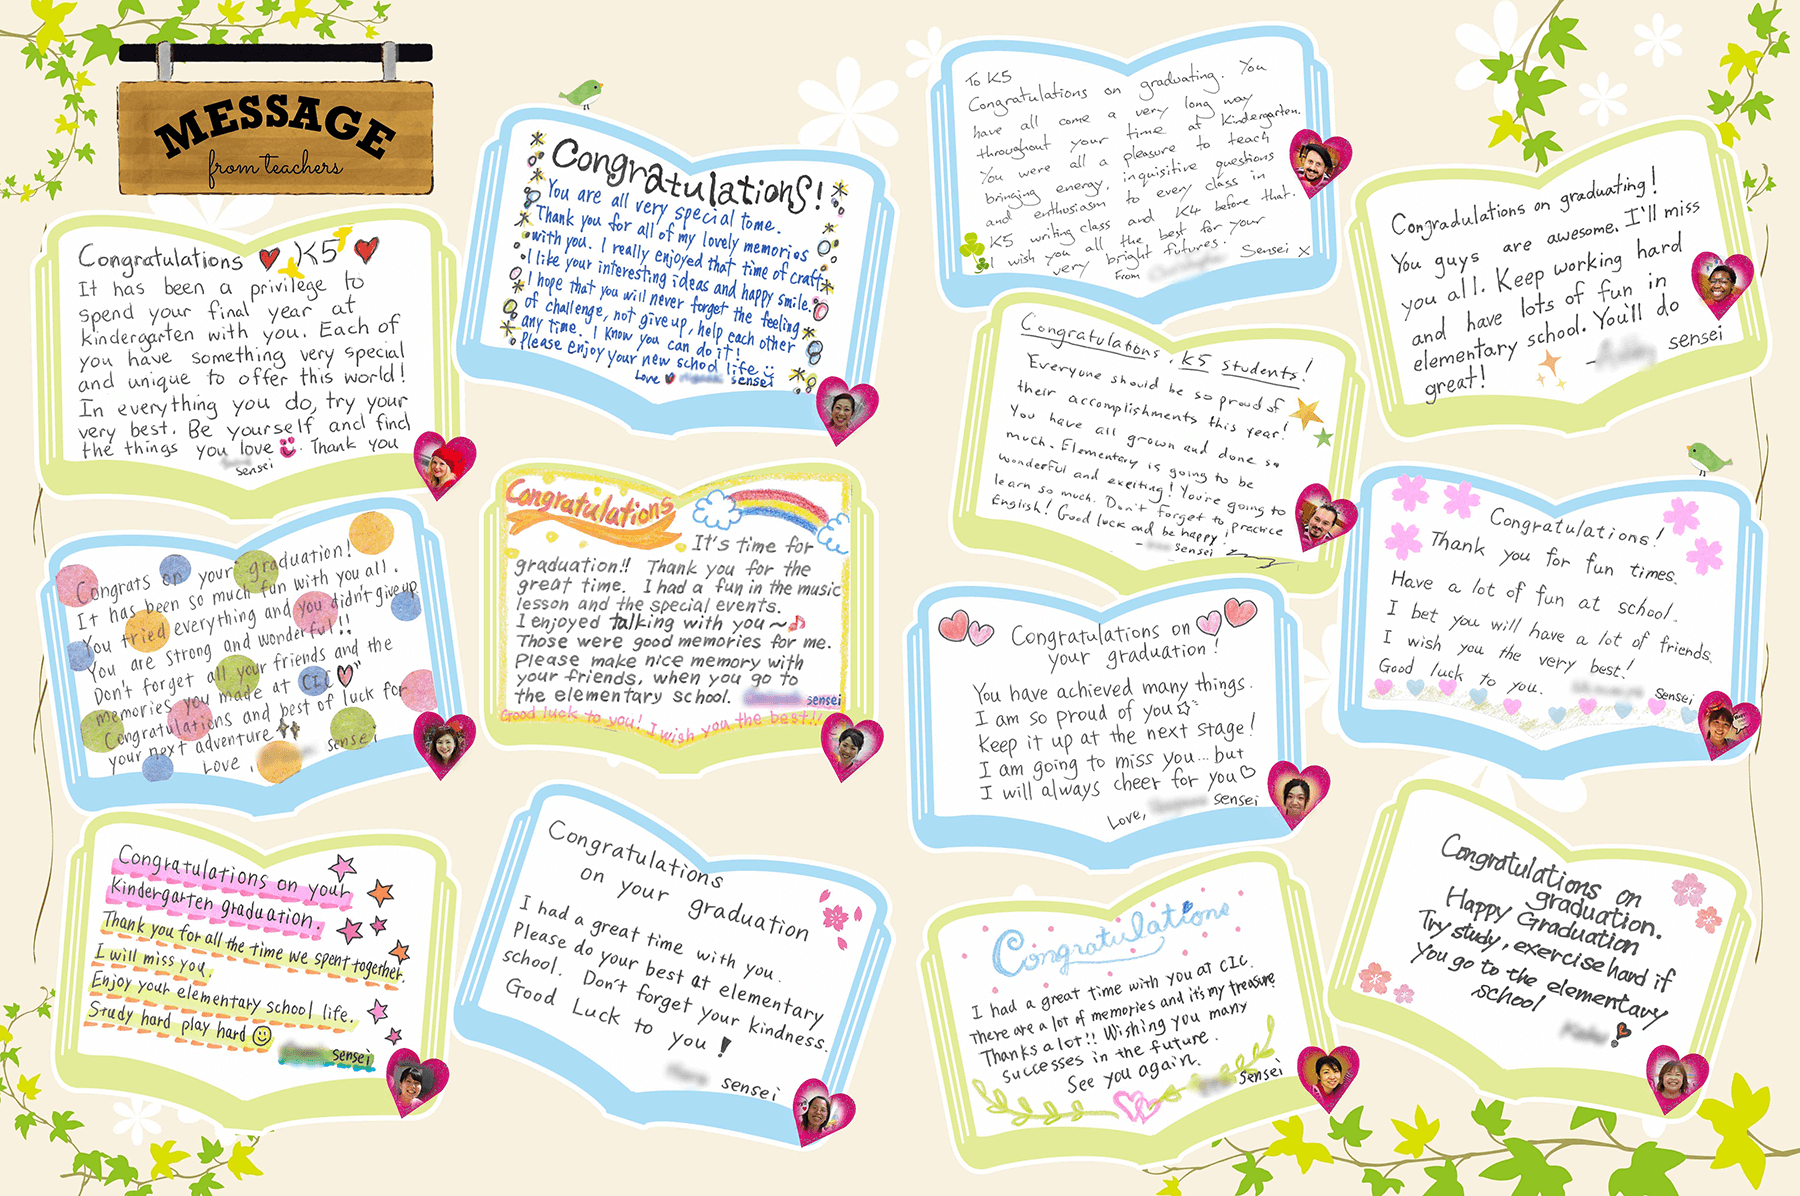 MESSAGE
from teachers
Congratulations K5
It has been a privilege to
spend your final year at
kindergarten with you. Each of
you have something very special
and unique to offer this world!
In everything you do, try your
very best. Be yourself and find
the things you love. Thank you
sensei
Congratulations!
You are all very special tome.
Thank you for all of my lovely memories
with you. I really enjoyed that time of craft.
I like your interesting ideas and happy smile.
I hope that you will never forget the feeling
of challenge, not give up, help each other
any time. I know you can do it!
Please enjoy your new school life.
Love sensei
To K5
Congratulations on graduating. You
have all come a very long way
throughout your time at Kindergarten.
You were all a pleasure to teach
bringing energy, inquisitive questions
and enthusiasm to every class in
K5 writing class and K4 before that.
I wish you all the best for your
very bright futures.
From Sensei x
Congradulations on graduating!
You guys are awesome. I'll miss
you all. Keep working hard
and have lots of fun in
elementary school. You'll do
great! - sensei
Congrats on your graduation!
It has been so much fun with you all.
You tried everything and you didn't give up
You are strong and wonderful!!
Don't forget all your friends and the
memories you made at CIC
Congratulations and best of luck for
your next adventure
Love, sensei
Congratulations
It's time for
graduation!! Thank you for the
great time. I had a fun in the music
lesson and the special events.
I enjoyed talking with you~♪
Those were good memories for me.
Please make nice memory with
your friends, when you go to
the elementary school. sensei
Good luck to you! I wish you the best!!
Congratulations, K5 students!
Everyone should be so proud of
their accomplishments this year!
You have all grown and done so
much. Elementary is going to be
wonderful and exciting! You're going to
learn so much. Don't forget to practice
English! Good luck and be happy!
- sensei
Congratulations!
Thank you for fun times.
Have a lot of fun at school.
I bet you will have a lot of friends.
I wish you the very best!
Good luck to you. sensei
Congratulations on
your graduation!
You have achieved many things.
I am so proud of you☆
Keep it up at the next stage!
I am going to miss you...but
I will always cheer for you♡
Love, sensei
Congratulations on your
Kindergarten graduation.
Thank you for all the time we spent together.
I will miss you.
Enjoy your elementary school life.
Study hard play hard
sensei
Congratulations
on your graduation
I had a great time with you.
Please do your best at elementary
school. Don't forget your kindness.
Good Luck to you!
sensei
Congratulations
I had a great time with you at CIC.
There are a lot of memories and it's my treasure.
Thanks a lot!! Wishing you many
successes in the future.
See you again.
sensei
Congratulations on
graduation.
Happy Graduation
Try study, exercise hard if
you go to the elementary
school